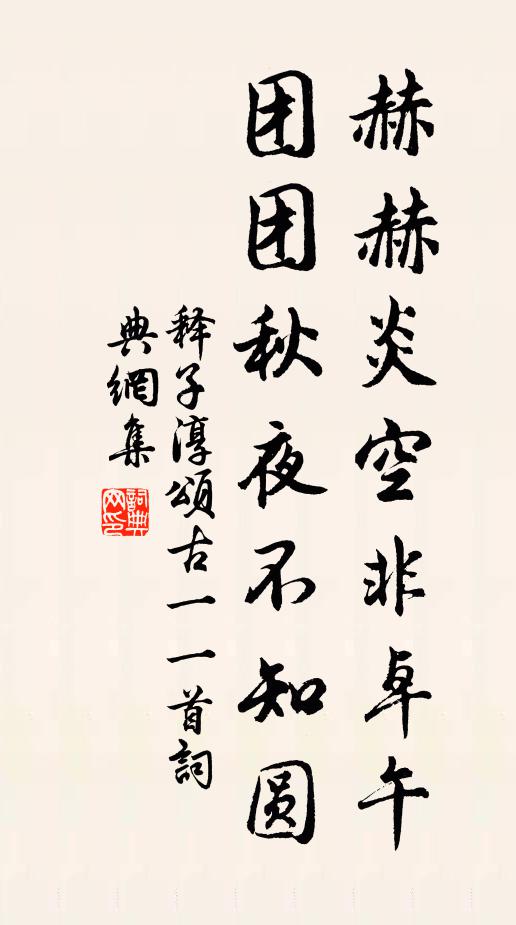 赫赫炎空非卓午
团团秋夜不知圆
释子淳頌古一一首詞
典網集
詞典网印